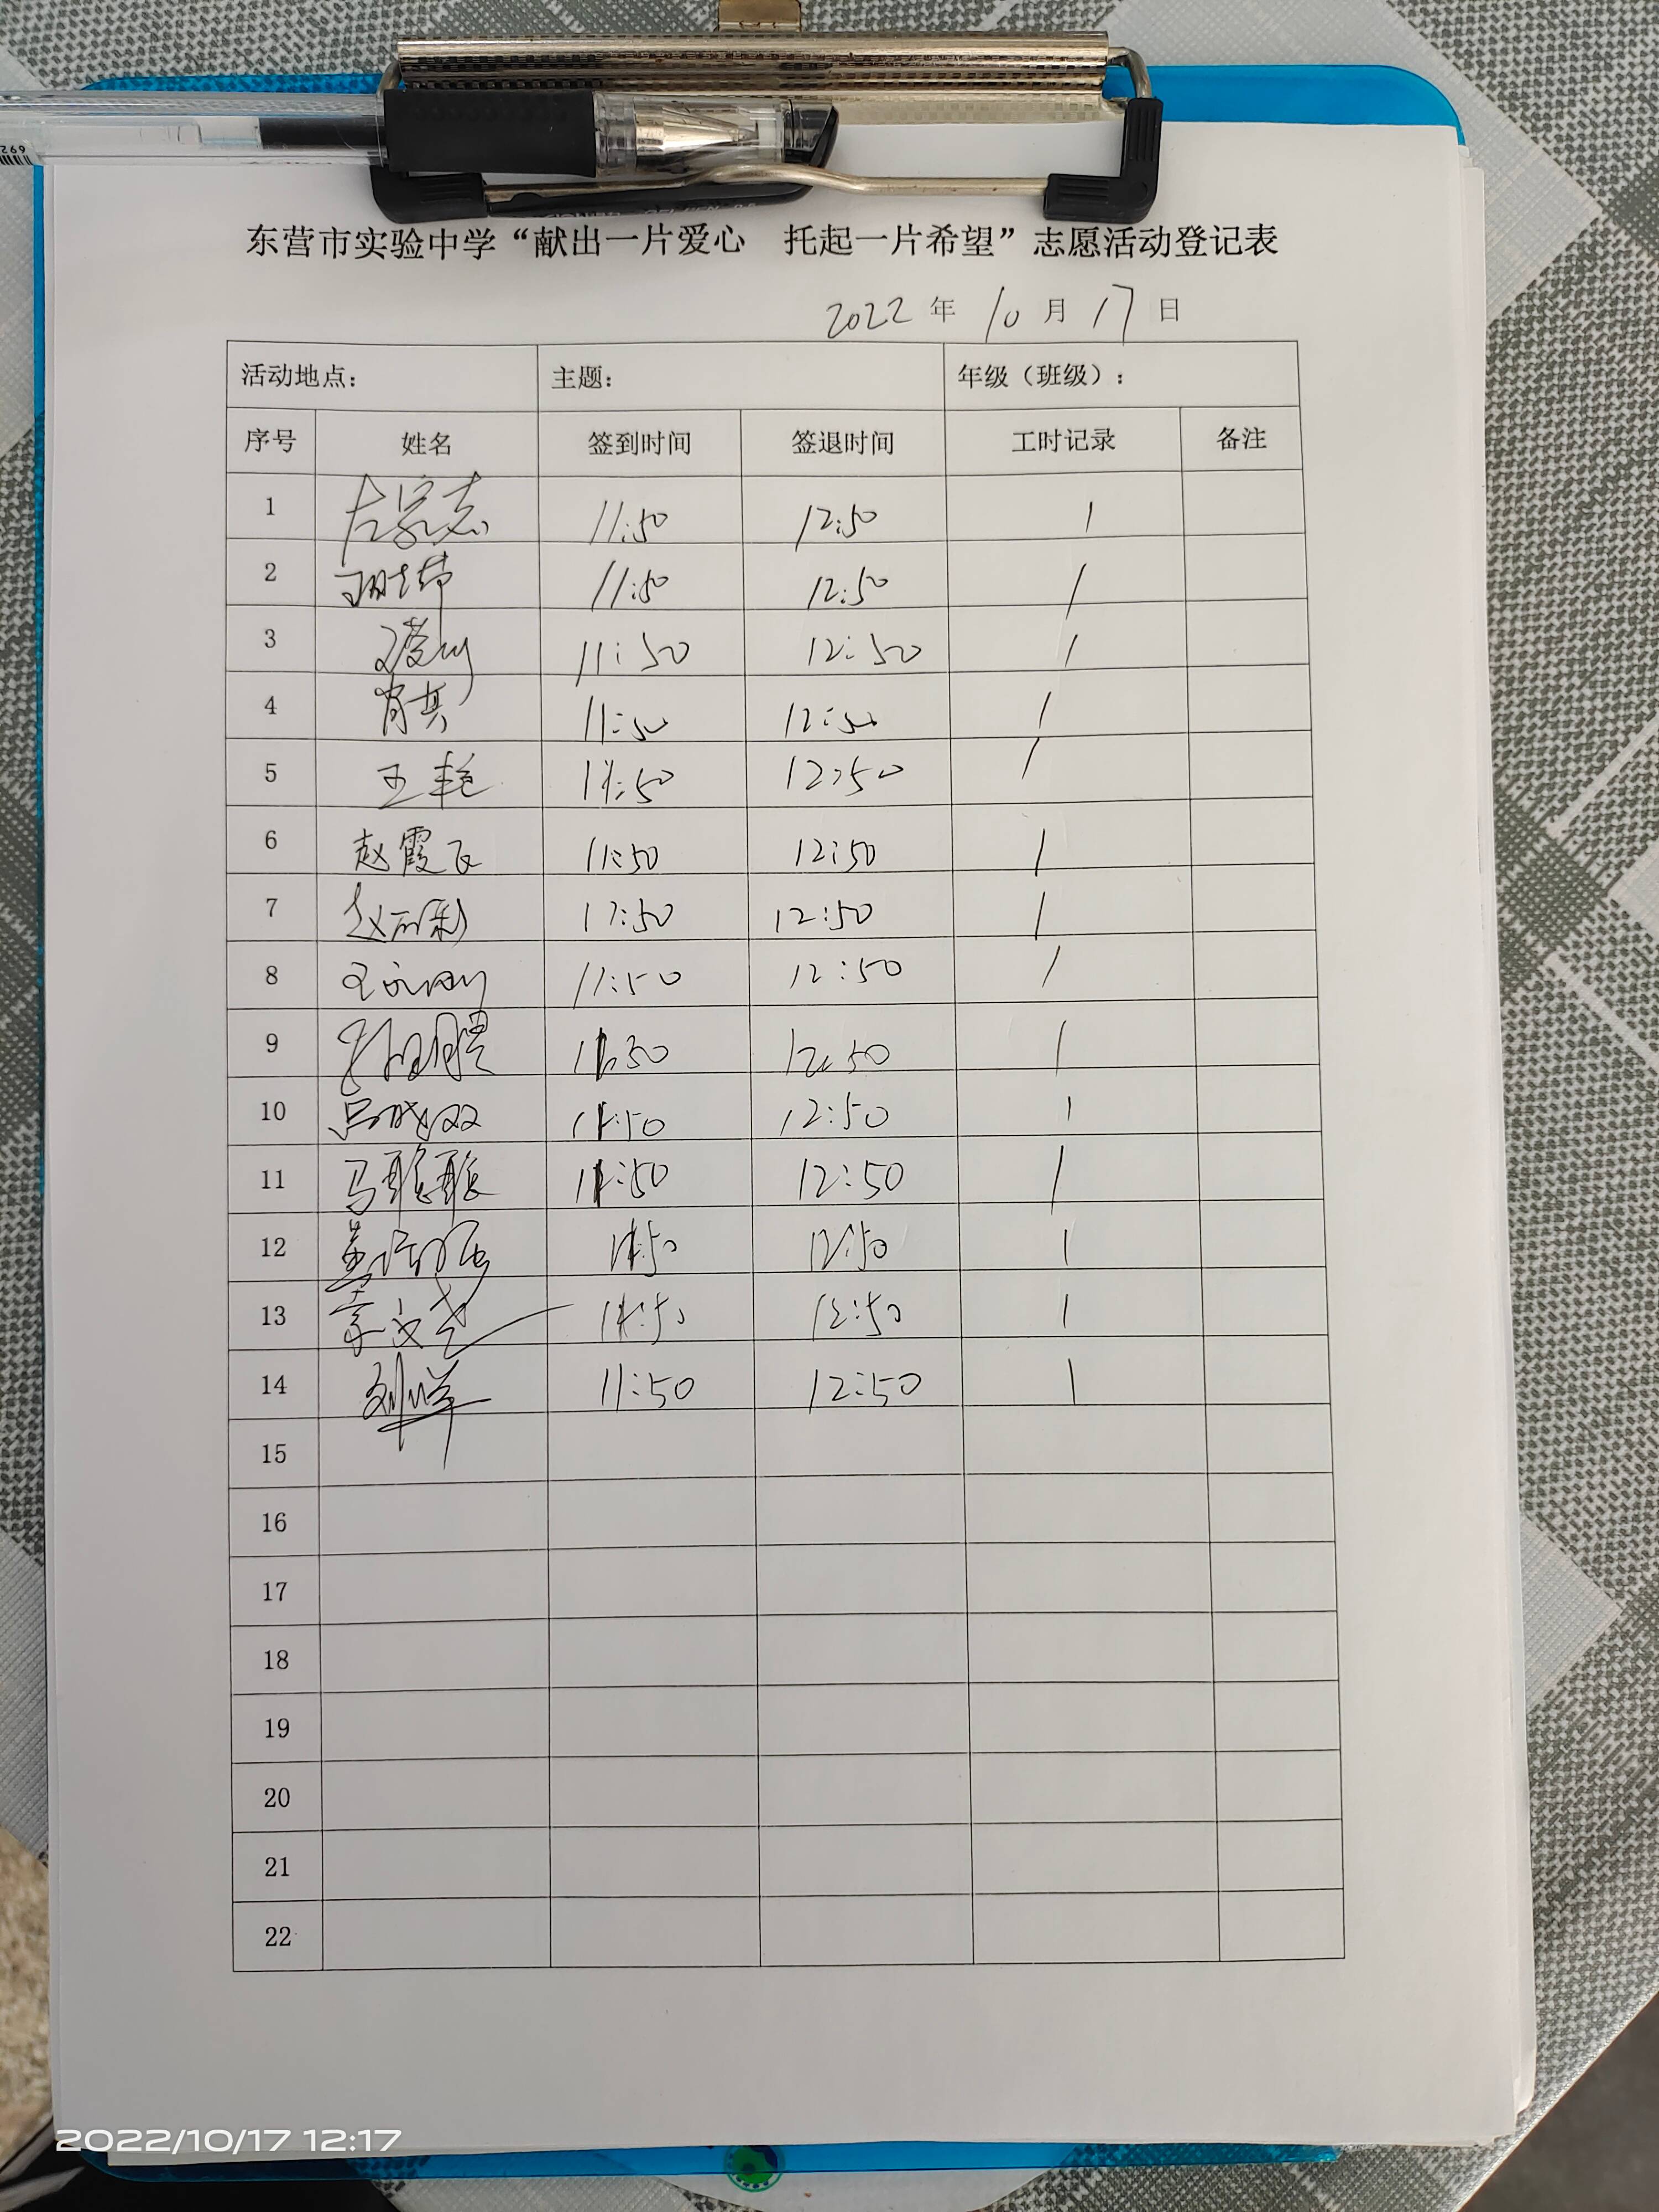 东营市实验中学“献出一片爱心 托起一片希望”志愿活动登记表
2022 年 10 月 17 日
活动地点： 主题： 年级（班级）：
序号 姓名 签到时间 签退时间 工时记录 备注
1 11:50 12:50 1
2 11:50 12:50 1
3 11:50 12:50 1
4 肖其 11:50 12:50 1
5 王艳 11:50 12:50 1
6 赵霞飞 11:50 12:50 1
7 12:50 1
8 11:50 12:50 1
9 12:50 1
10 11:50 12:50 1
11 马聪聪 11:50 12:50 1
12 11:50 12:50 1
13 11:50 12:50 1
14 刘洋 11:50 12:50 1
15
16
17
18
19
20
21
22
2022/10/17 12:17